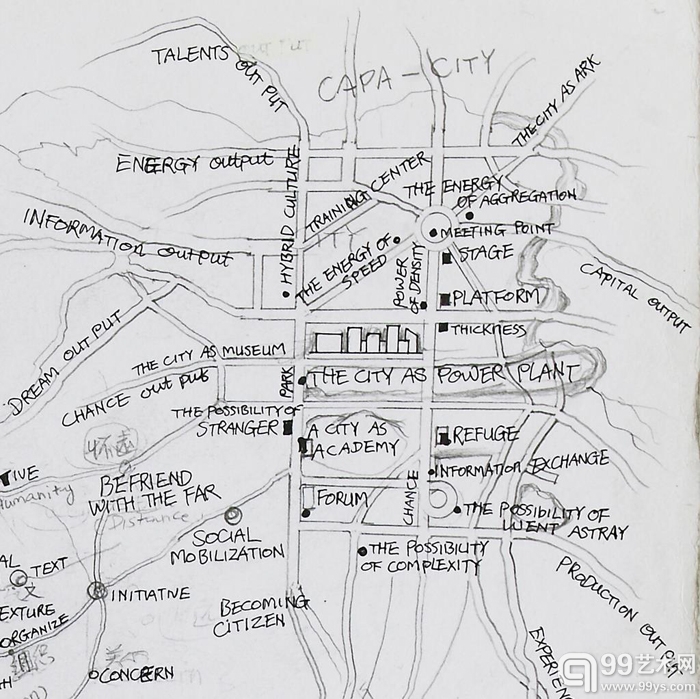 TALENTS OUTPUT
CAPA-CITY
THE CITY AS ARK
ENERGY output
HYBRID CULTURE
TRAINING CENTER
THE ENERGY
OF AGGREGATION
INFORMATION OUTPUT
MEETING POINT
STAGE
THE ENERGY OF
SPEED
POWER
OF DENSITY
PLATFORM
CAPITAL OUTPUT
THICKNESS
DREAM OUT PUT
THE CITY AS MUSEUM
PARK
THE CITY AS POWER PLANT
CHANCE OUT PUT
THE POSSIBILITY OF
STRANGER
A CITY AS
ACADEMY
REFUGE
INFORMATION EXCHANGE
TIVE
Humanity
BEFRIEND
WITH THE FAR
Distance
FORUM
CHANCE
THE POSSIBILITY OF
WENT ASTRAY
SOCIAL
MOBILIZATION
THE POSSIBILITY
OF COMPLEXITY
AL
TEXT
文
INITIATIVE
EXTURE
ORGANIZE
组织
BECOMING
CITIZEN
PRODUCTION OUTPUT
EXPERIEN
CONCERN
TH
99艺术网
www.99ys.com